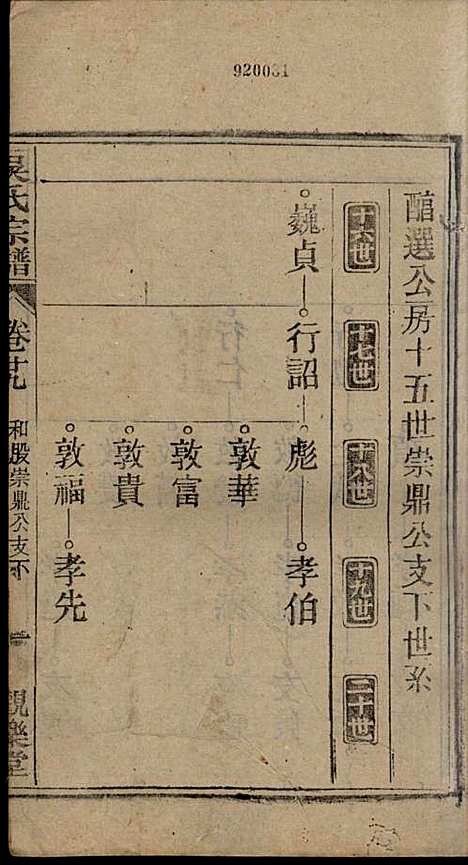 920031
醕選公房十五世崇鼎公支下世系
十六世
十七世
十八世
十九世
二十世
巍貞 行詔 彪 孝伯
敦華
敦富
敦貴
敦福 孝先
吳氏宗譜 卷廿九 和股崇鼎公支下 一 親樂堂